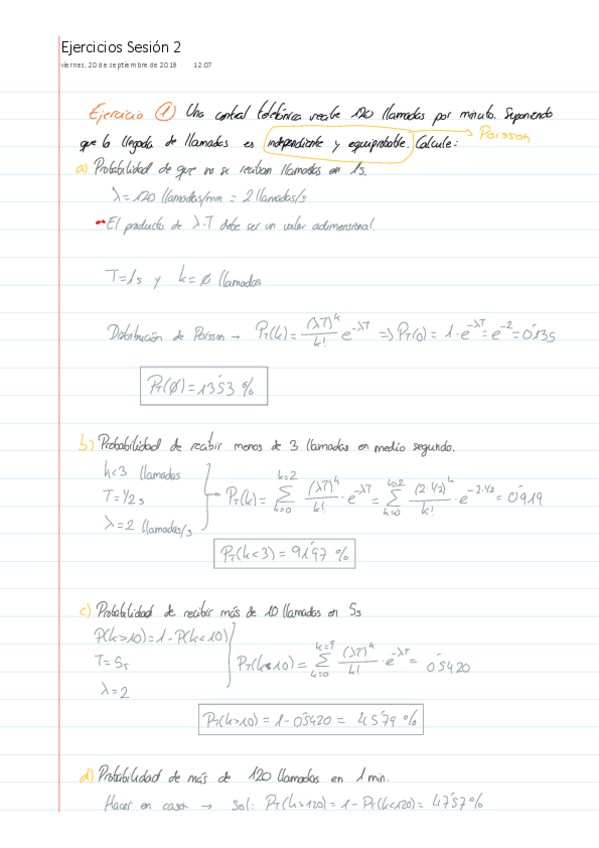 Ejercicios Sesión 2
viernes, 20 de septiembre de 2019 12:07
Ejercicio 1) Una central telefónica recibe 120 llamadas por minuto. Suponiendo
que la llegada de llamadas es independiente y equiprobable. Calcule: → Poisson
a) Probabilidad de que no se reciban llamadas en 1s.
λ = 120 llamadas/min = 2 llamadas/s
El producto de λ·T debe ser un valor adimensional.
T=1s y k=Ø llamadas
Distribución de Poisson → P_T(k) = (λT)^k / k! e^-λT => P_T(0) = 1·e^-λT = e^-2 = 0'135
P_T(Ø) = 13'53 %
b) Probabilidad de recibir menos de 3 llamadas en medio segundo.
k<3 llamadas
T=1/2 s → P_T(k) = Σ_{k=0}^{k=2} (λT)^k / k! · e^-λT = Σ_{k=0}^{k=2} (2·1/2)^k / k! · e^-2·1/2 = 0'919
λ=2 llamadas/s
P_T(k<3) = 91'97 %
c) Probabilidad de recibir más de 10 llamadas en 5s
P(k>10) = 1 - P(k<10)
T=5s P_T(k<10) = Σ_{k=0}^{k=9} (λT)^k / k! · e^-λT = 0'5420
λ=2
P_T(k>10) = 1 - 0'5420 = 45'79 %
d) Probabilidad de más de 120 llamadas en 1 min.
Hacer en casa → Sol: P_T(k>120) = 1 - P_T(k<120) = 47'57 %